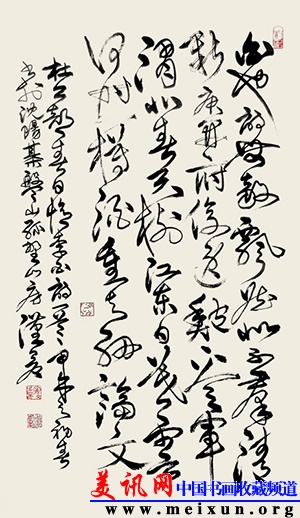 白也詩無敵飄然思不群清
新庾開府俊逸鮑參軍
渭北春天樹江東日暮雲
何時一樽酒重與細論文
杜工部春日憶李白詩初春
沈陽棋盤山山房
美讯网 中国书画收藏频道
www.meixun.org